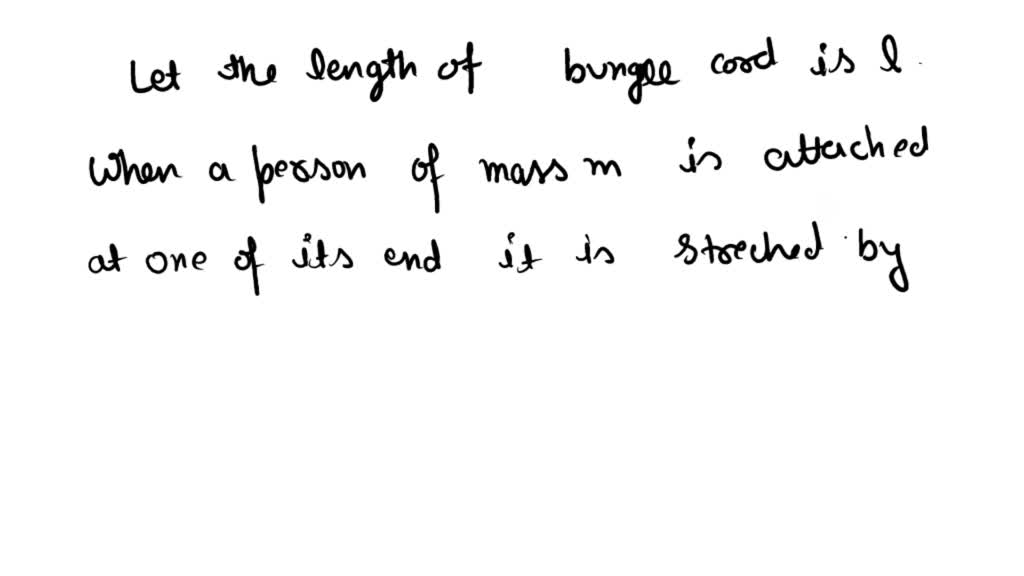 Let the length of bungee cord is l.
When a person of mass m is attached
at one of its end it is streched by